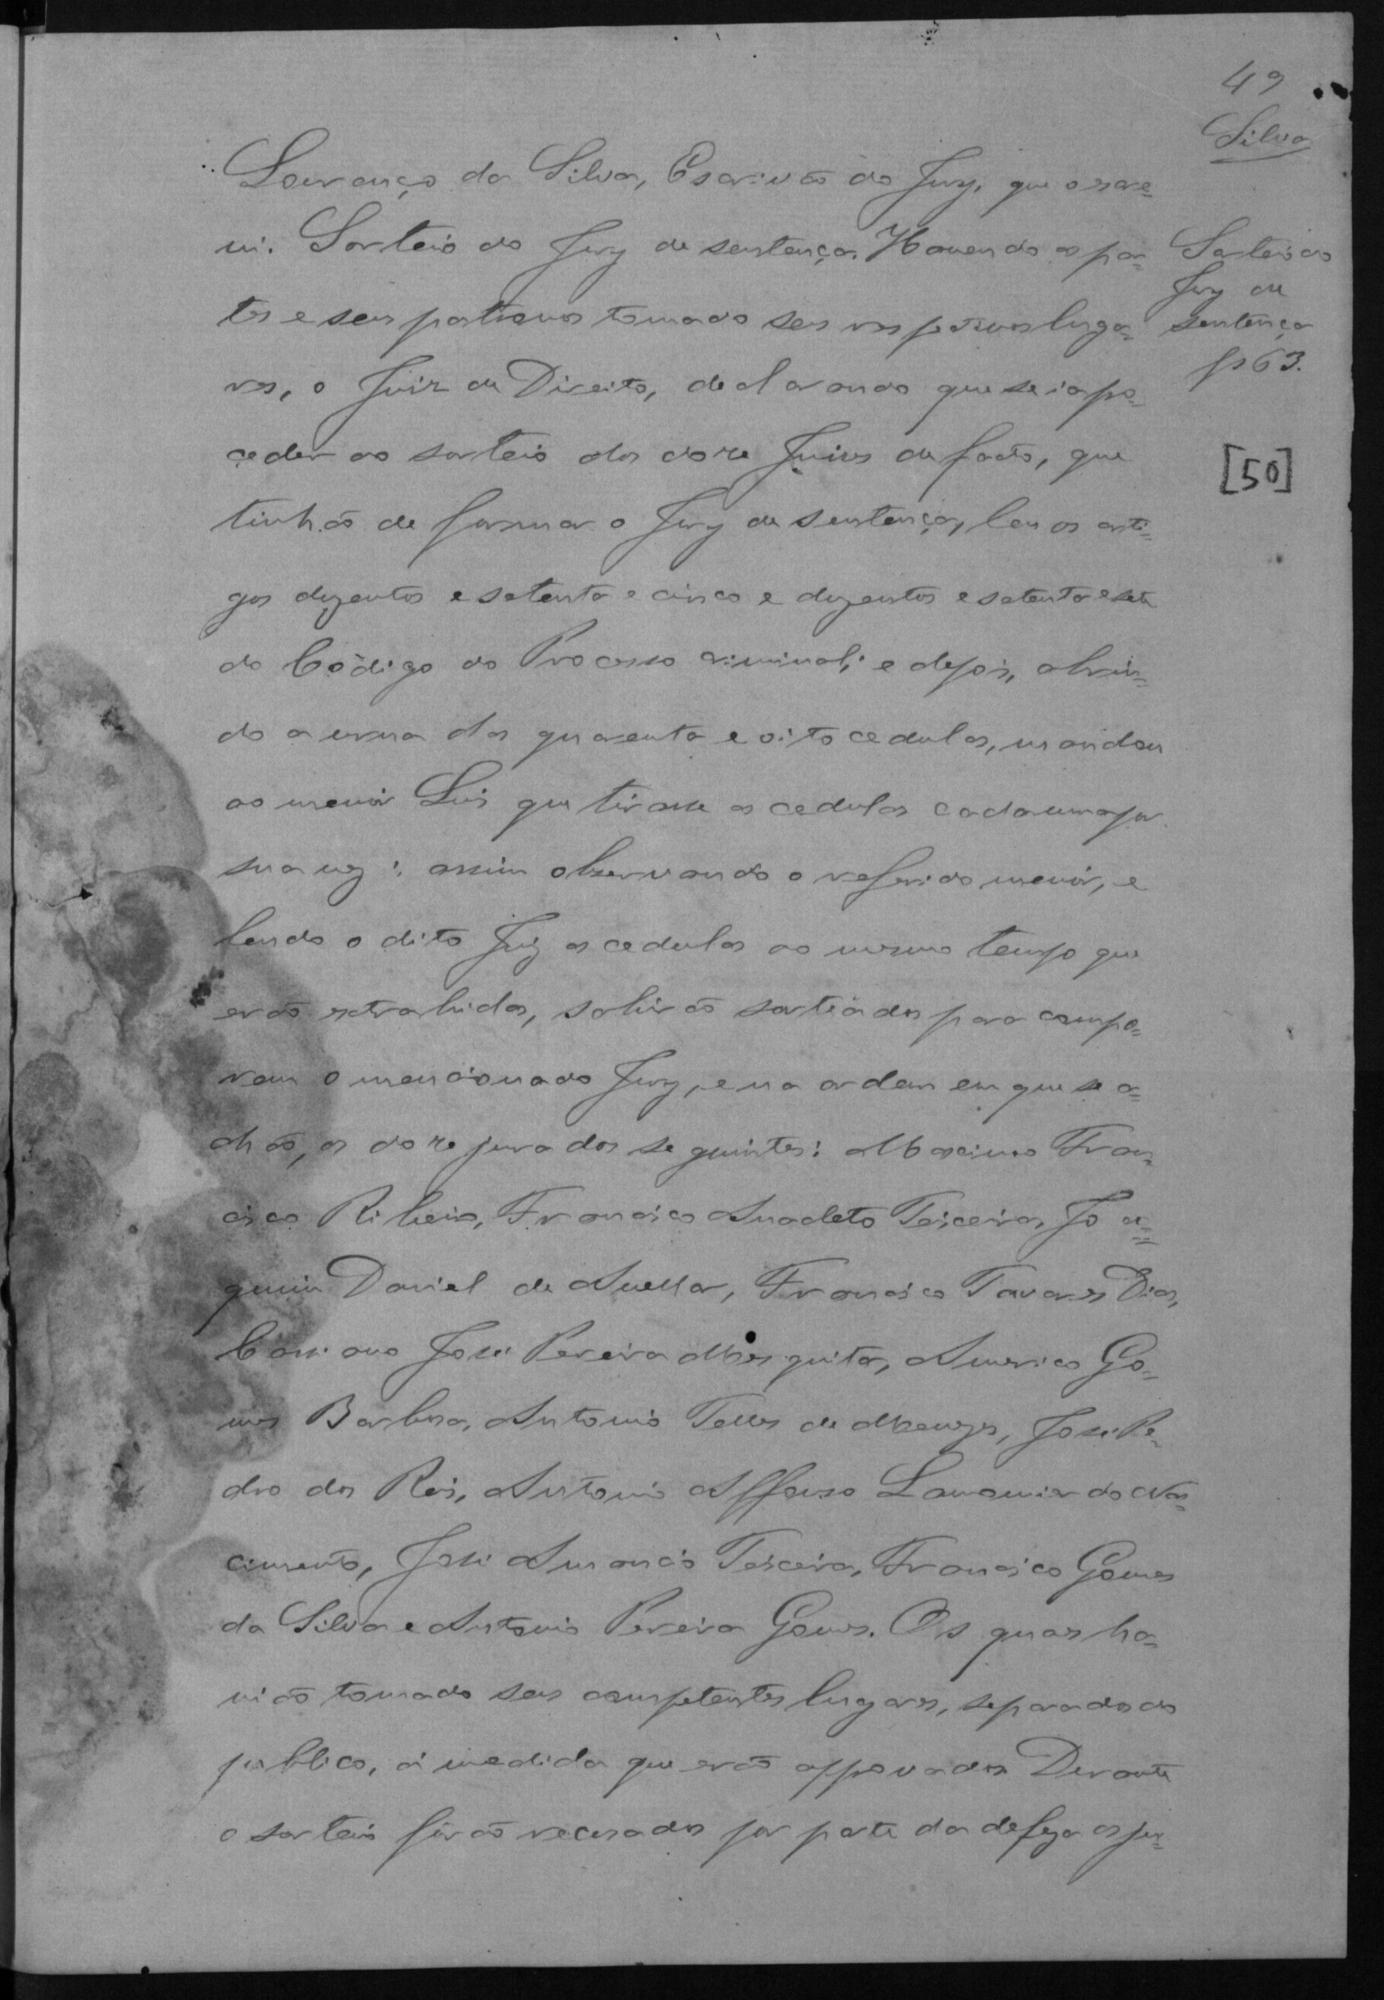 49
Silva
Lourenço da Silva, Escrivão do Jury, que o escre-
vi. Sorteio do Jury de sentença. Havendo as par-
tes e seus patronos tomado seus respetivos luga-
res, o Juiz de Direito, declarando que se ia pro-
ceder ao sorteio dos doze Juises de facto, que
tinhão de formar o Jury de sentença, leu os arti-
gos duzentos e setenta e cinco e duzentos e setenta e sete
do Código do Processo criminal; e depois, abrin-
do a urna das quarenta e oito cedulas, mandou
ao menor Luis que tirasse as cedulas cada uma por
sua vez: assim observando o referido menor, e
lendo o dito Juiz as cedulas ao mesmo tempo que
erão extrahidas, sahirão sorteados para compo-
rem o mencionado Jury, e na ordem em que se a-
chão, os doze jurados seguintes: Maximo Fran-
cisco Ribeiro, Francisco Anacleto Teixeira, Joa-
quim Daniel de Avellar, Francisco Tavares Dias,
Cassiano José Pereira Mesquita, Americo Go-
mes Barbosa, Antonio Telles de Menezes, José Pe-
dro dos Reis, Antonio Affonso Lamounier do Nas-
cimento, José Amancio Teixeira, Francisco Gomes
da Silva e Antonio Pereira Gomes. Os quaes ha-
vião tomado seus competentes lugares, separados do
publico, á medida que erão approvados. Durante
o sorteio forão recusados por parte da defeza os ju-
Sorteio do
Jury de
sentença
fs 63.
[50]